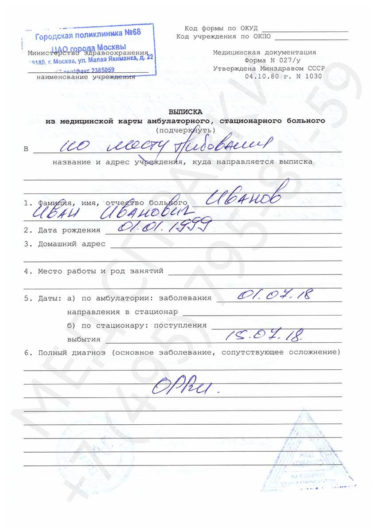 Городская поликлиника №68
ЦАО города Москвы
Министерство здравоохранения
г. Москва, ул. Малая Якиманка, д. 22
наименование учреждения
Код формы по ОКУД
Код учреждения по ОКПО
Медицинская документация
Форма N 027/у
Утверждена Минздравом СССР
04.10.80 г. N 1030
ВЫПИСКА
из медицинской карты амбулаторного, стационарного больного
(подчеркнуть)
в по месту требования
название и адрес учреждения, куда направляется выписка
1. Фамилия, имя, отчество больного Иванов
Иван Иванович
2. Дата рождения 01.01.1999
3. Домашний адрес
4. Место работы и род занятий
5. Даты: а) по амбулатории: заболевания 01.07.18
направления в стационар
б) по стационару: поступления
выбытия 15.07.18.
6. Полный диагноз (основное заболевание, сопутствующее осложнение)
ОРВИ.